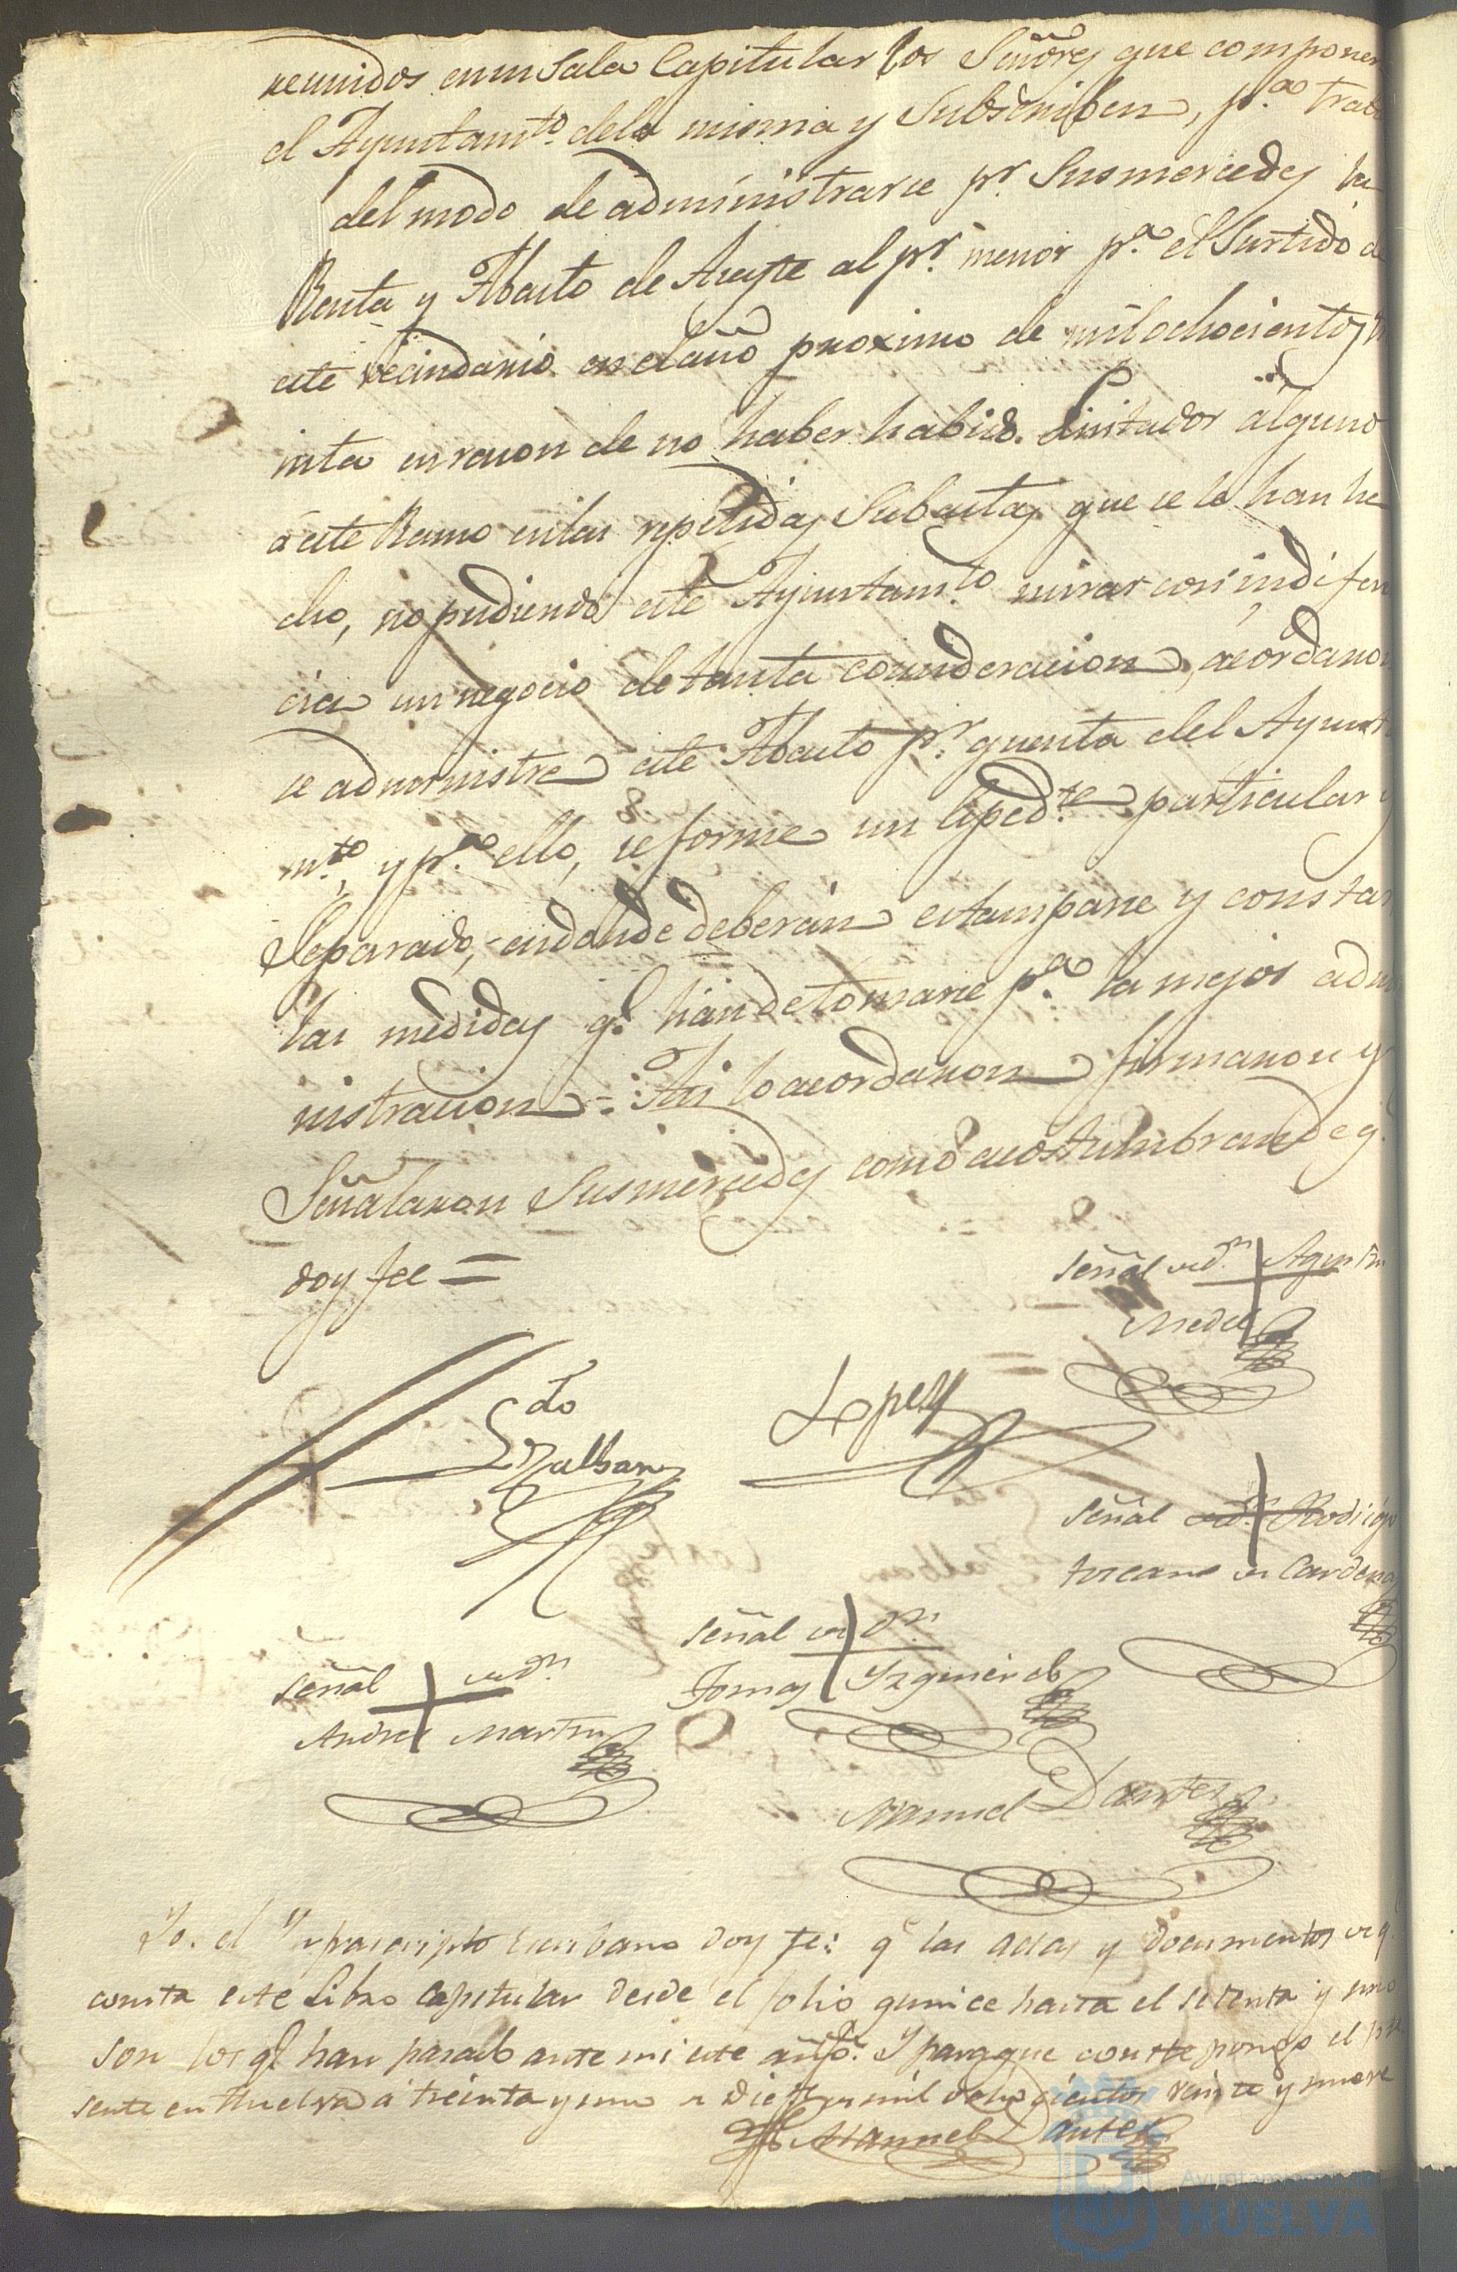 reunidos en su Sala Capitular los Señores que componen
el Ayuntam.to dela misma y Subscriben, p.a trat
del modo de administrarse p.r Susmercedes la
Renta y Abasto de Aceyte al p.r menor p.a el Surtido d
este vecindario en el año proximo de mil ochocientos
inta en razon de no haber habido Licitador alguno
a este Ramo en las repetidas Subastas que se le han he
cho, no pudiendo este Ayuntam.to mirar con indifen
cia un negocio de tanta consideracion, acordaron
se administre este Abasto p.r quenta del Ayunta
m.to, y p.a ello, se forme un Exped.te particular y
Separado, en donde deberán estamparse y constar
las medidas q.e han de tomarse p.a la mejor adm
nistracion = Asi lo acordaron firmaron y
Señalaron Susmercedes como acostumbran de q.e
doy fee =
Señal de d.n Agustin
Medel
Ldo
Zalban
Lopez
Señal de d.n Rodrigo
toscano de Cardenas
Señal de d.n
Tomas Yzquierdo
Señal de d.n
Andres Martin
Manuel Dantes
Yo el Ynfrascripto Escribano doy fe: q.e las actas y documentos de q.
consta este Libro Capitular desde el folio quince hasta el setenta y uno
son los q.e han pasado ante mi este año. Y para que conste pongo el pre
sente en Huelva á treinta y uno de Diz.e de mil ochocientos veinte y nueve
Manuel Dantes
Ayuntamiento de
HUELVA